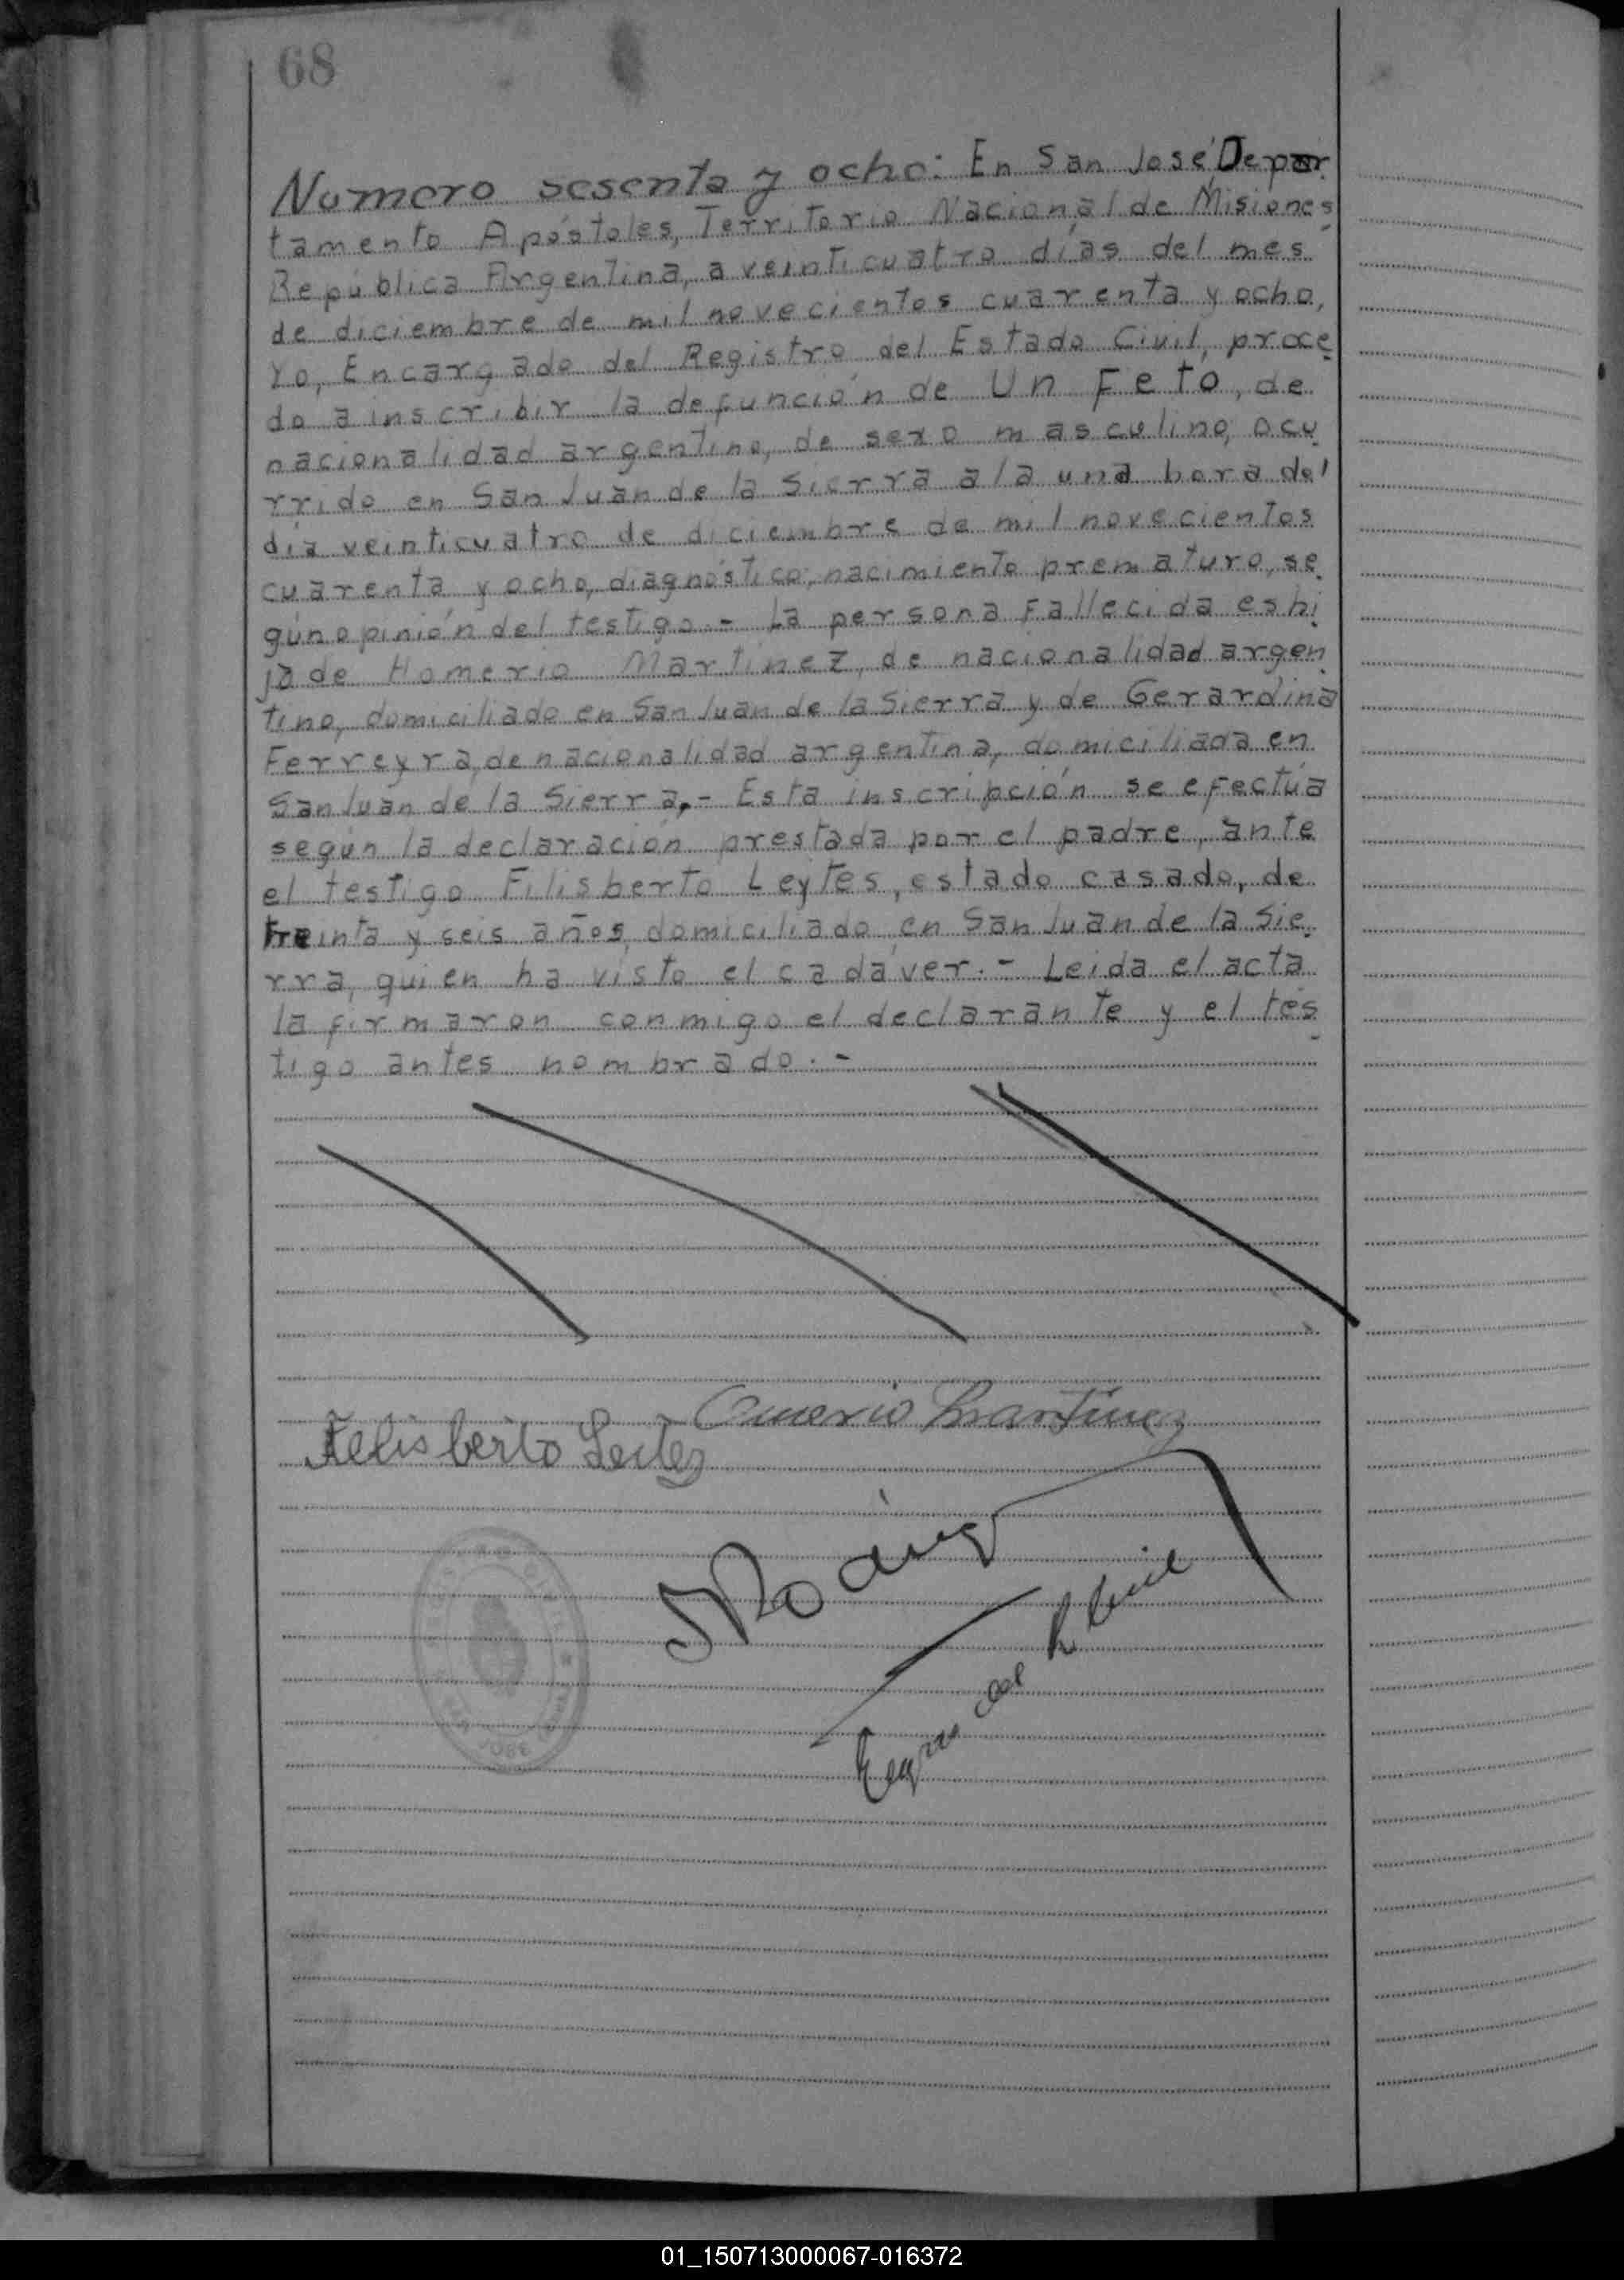 68
Numero sesenta y ocho: En San José Depar
tamento Apóstoles, Territorio Nacional de Misiones
República Argentina, a veinticuatro días del mes
de diciembre de mil novecientos cuarenta y ocho,
Yo, Encargado del Registro del Estado Civil, proce
do a inscribir la defunción de Un Feto, de
nacionalidad argentino, de sexo masculino, ocu
rrido en San Juan de la Sierra a la una hora del
día veinticuatro de diciembre de mil novecientos
cuarenta y ocho, diagnóstico; nacimiento prematuro, se
gún opinión del testigo.- La persona Fallecida es hi
ja de Homerio Martinez, de nacionalidad argen
tino, domiciliado en San Juan de la Sierra y de Gerardina
Ferreyra, de nacionalidad argentina, domiciliada en
San Juan de la Sierra,.- Esta inscripción se efectúa
según la declaración prestada por el padre, ante
el testigo Filisberto Leytes, estado casado, de
treinta y seis años, domiciliado en San Juan de la Sie
rra, quien ha visto el cadáver.- Leida el acta
la firmaron conmigo el declarante y el tes
tigo antes nombrado.-
Omerio Martinez
Felisberto Leites
del R Civil
01_150713000067-016372